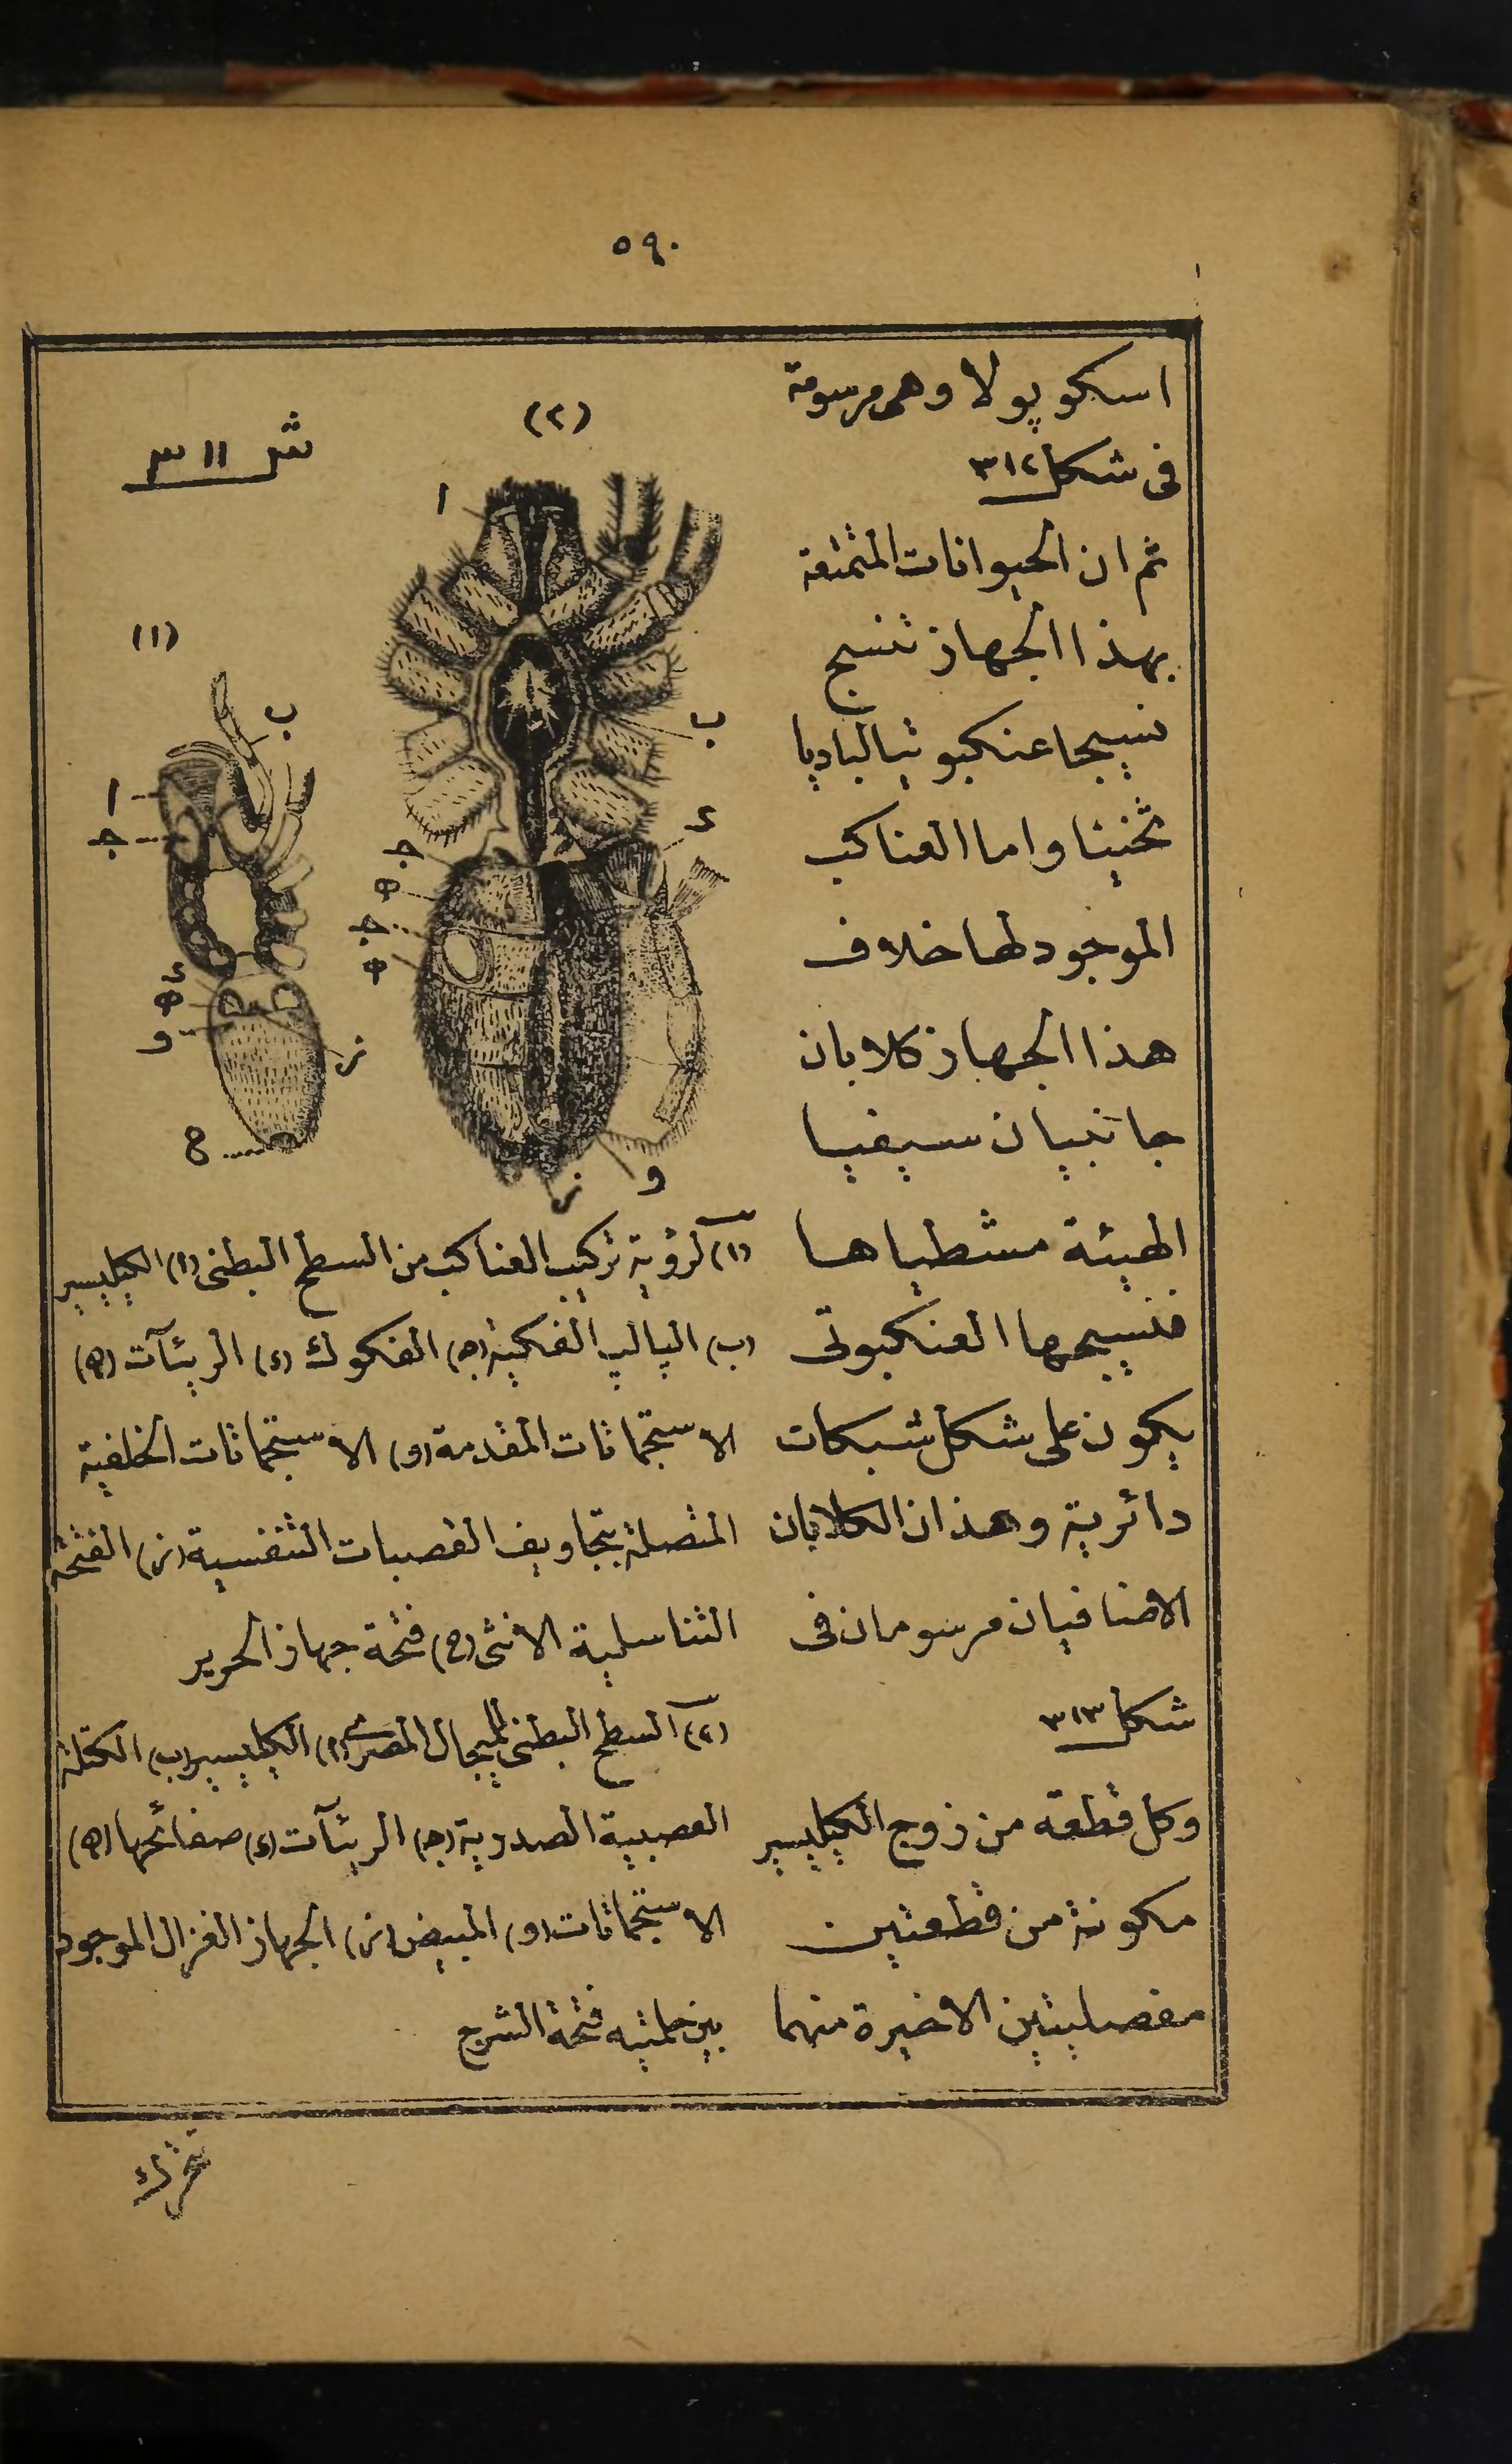 ٥٩٠
اسكوپولا وهى مرسومة
فى شكل ٣١٢
ثم ان الحيوانات المتمتعة
بهذا الجهاز تنسج
نسيجا عنكبوتيا لباديا
ثخينا واما العناكب
الموجود لها خلاف
هذا الجهاز كلابان
جانبيان سيفيا
الهيئة مشطياها
فنسيجها العنكبوتى
يكون على شكل شبكات
دائرية وهذان الكلابان
الاضافيان مرسومان فى
شكل ٣١٣
وكل قطعة من زوج الكيليسير
مكونة من قطعتين
مفصليتين الاخيرة منهما
شر ٣١١
(٢)
ا
ب
ج
د
ه
ج
ه
و
ز
(١)
ب
ا
ج
د
ه
و
ز
ح
(١) لرؤية تركيب العناكب من السطح البطنى (ا) الكيليسير
(ب) الپالپ الفكية (ج) الفكوك (د) الريئآت (ه)
الاستجماتات المقدمة (و) الاستجماتات الخلفية
المتصلة بتجاويف القصبات التنفسية (ز) الفتحة
التناسلية الانثى (ح) فتحة جهاز الحرير
(٢) السطح البطنى للميجال المصرى (ا) الكيليسير (ب) الكتلة
العصبية الصدرية (ج) الريئآت (د) صفائحها (ه)
الاستجماتات (و) المبيض (ز) الجهاز الغزال الموجود
بين حلمتيه فتحة الشرج
تتحرك